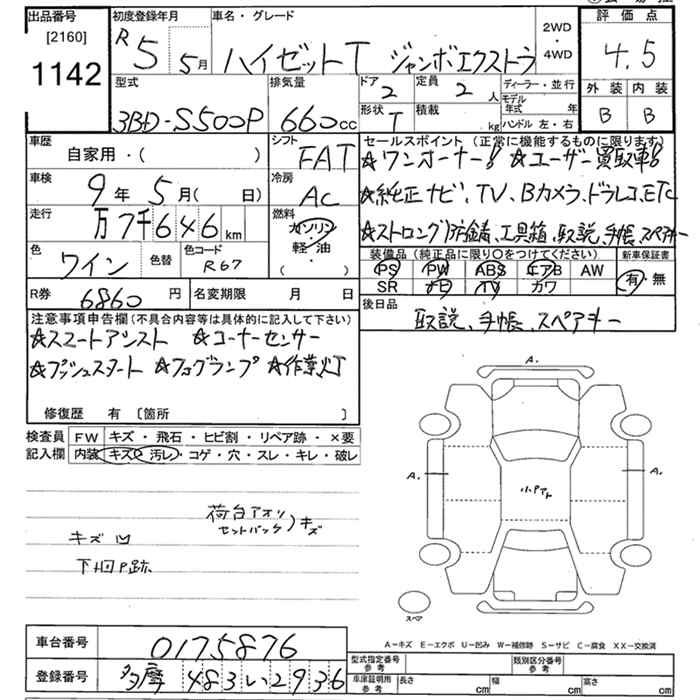 出品番号
[2160]
1142
初度登録年月
R5 5月
車名・グレード
ハイゼットT ジャンボエクストラ
2WD
・
4WD
評価点
4.5
外装 内装
B B
型式
3BD-S500P
排気量
660cc
ドア
2
定員
2人
ディーラー・並行
モデル年式 年
ハンドル 左・右
形状
T
積載
kg
車歴
自家用・( )
シフト
FAT
セールスポイント (正常に機能するものに限ります)
☆ワンオーナー! ☆ユーザー買取車!
☆純正ナビ、TV、Bカメラ、ドラレコ、ETC
☆ストロング防錆、工具箱、取説、手帳、スペアキー
車検
9年 5月( 日)
冷房
AC
走行
万7千646km
燃料
ガソリン
軽・油
( )
色
ワイン
色替
色コード
R67
装備品 (純正品に限り○をつけてください)
PS PW ABS エアB AW
SR ナビ TV カワ
新車保証書
有・無
R券
6860円
名変期限 月 日
後日品
取説、手帳、スペアキー
注意事項申告欄(不具合内容等は具体的に記入して下さい)
☆スマートアシスト ☆コーナーセンサー
☆プッシュスタート ☆フォグランプ ☆作業灯
修復歴 有 〔箇所 〕
検査員
記入欄
FW キズ・飛石・ヒビ割・リペア跡・×要
内装 キズ・汚レ・コゲ・穴・スレ・キレ・破レ
荷台アオリ
セットバック)キズ
キズ 凹
下回P跡
A.
A.
A.
A.
スペア
A-キズ E-エクボ U-凹み W-補修跡 S-サビ C-腐食 XX-交換済
車台番号
0175876
登録番号
多摩 483 い 2936
型式指定番号
参考
類別区分番号
参考
車庫証明用
参考
長さ cm
幅 cm
高さ cm